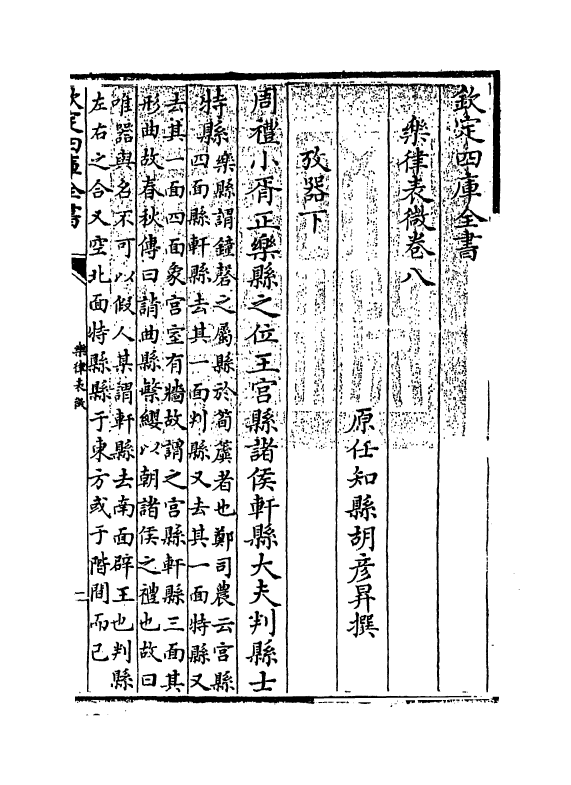 欽定四庫全書
樂律表微卷八
原任知縣胡彥昇撰
攷器下
周禮小胥正樂縣之位王宮縣諸侯軒縣大夫判縣士
特縣樂縣謂鐘磬之屬縣於筍簴者也鄭司農云宮縣
四面縣軒縣去其一面判縣又去其一面特縣又
去其一面四面象宮室有牆故謂之宮縣軒縣三面其
形曲故春秋傳曰請曲縣繁纓以朝諸侯之禮也故曰
唯器與名不可以假人某謂軒縣去南面辟王也判縣
左右之合又空北面特縣縣于東方或于階間而已
欽定四庫全書
樂律表微